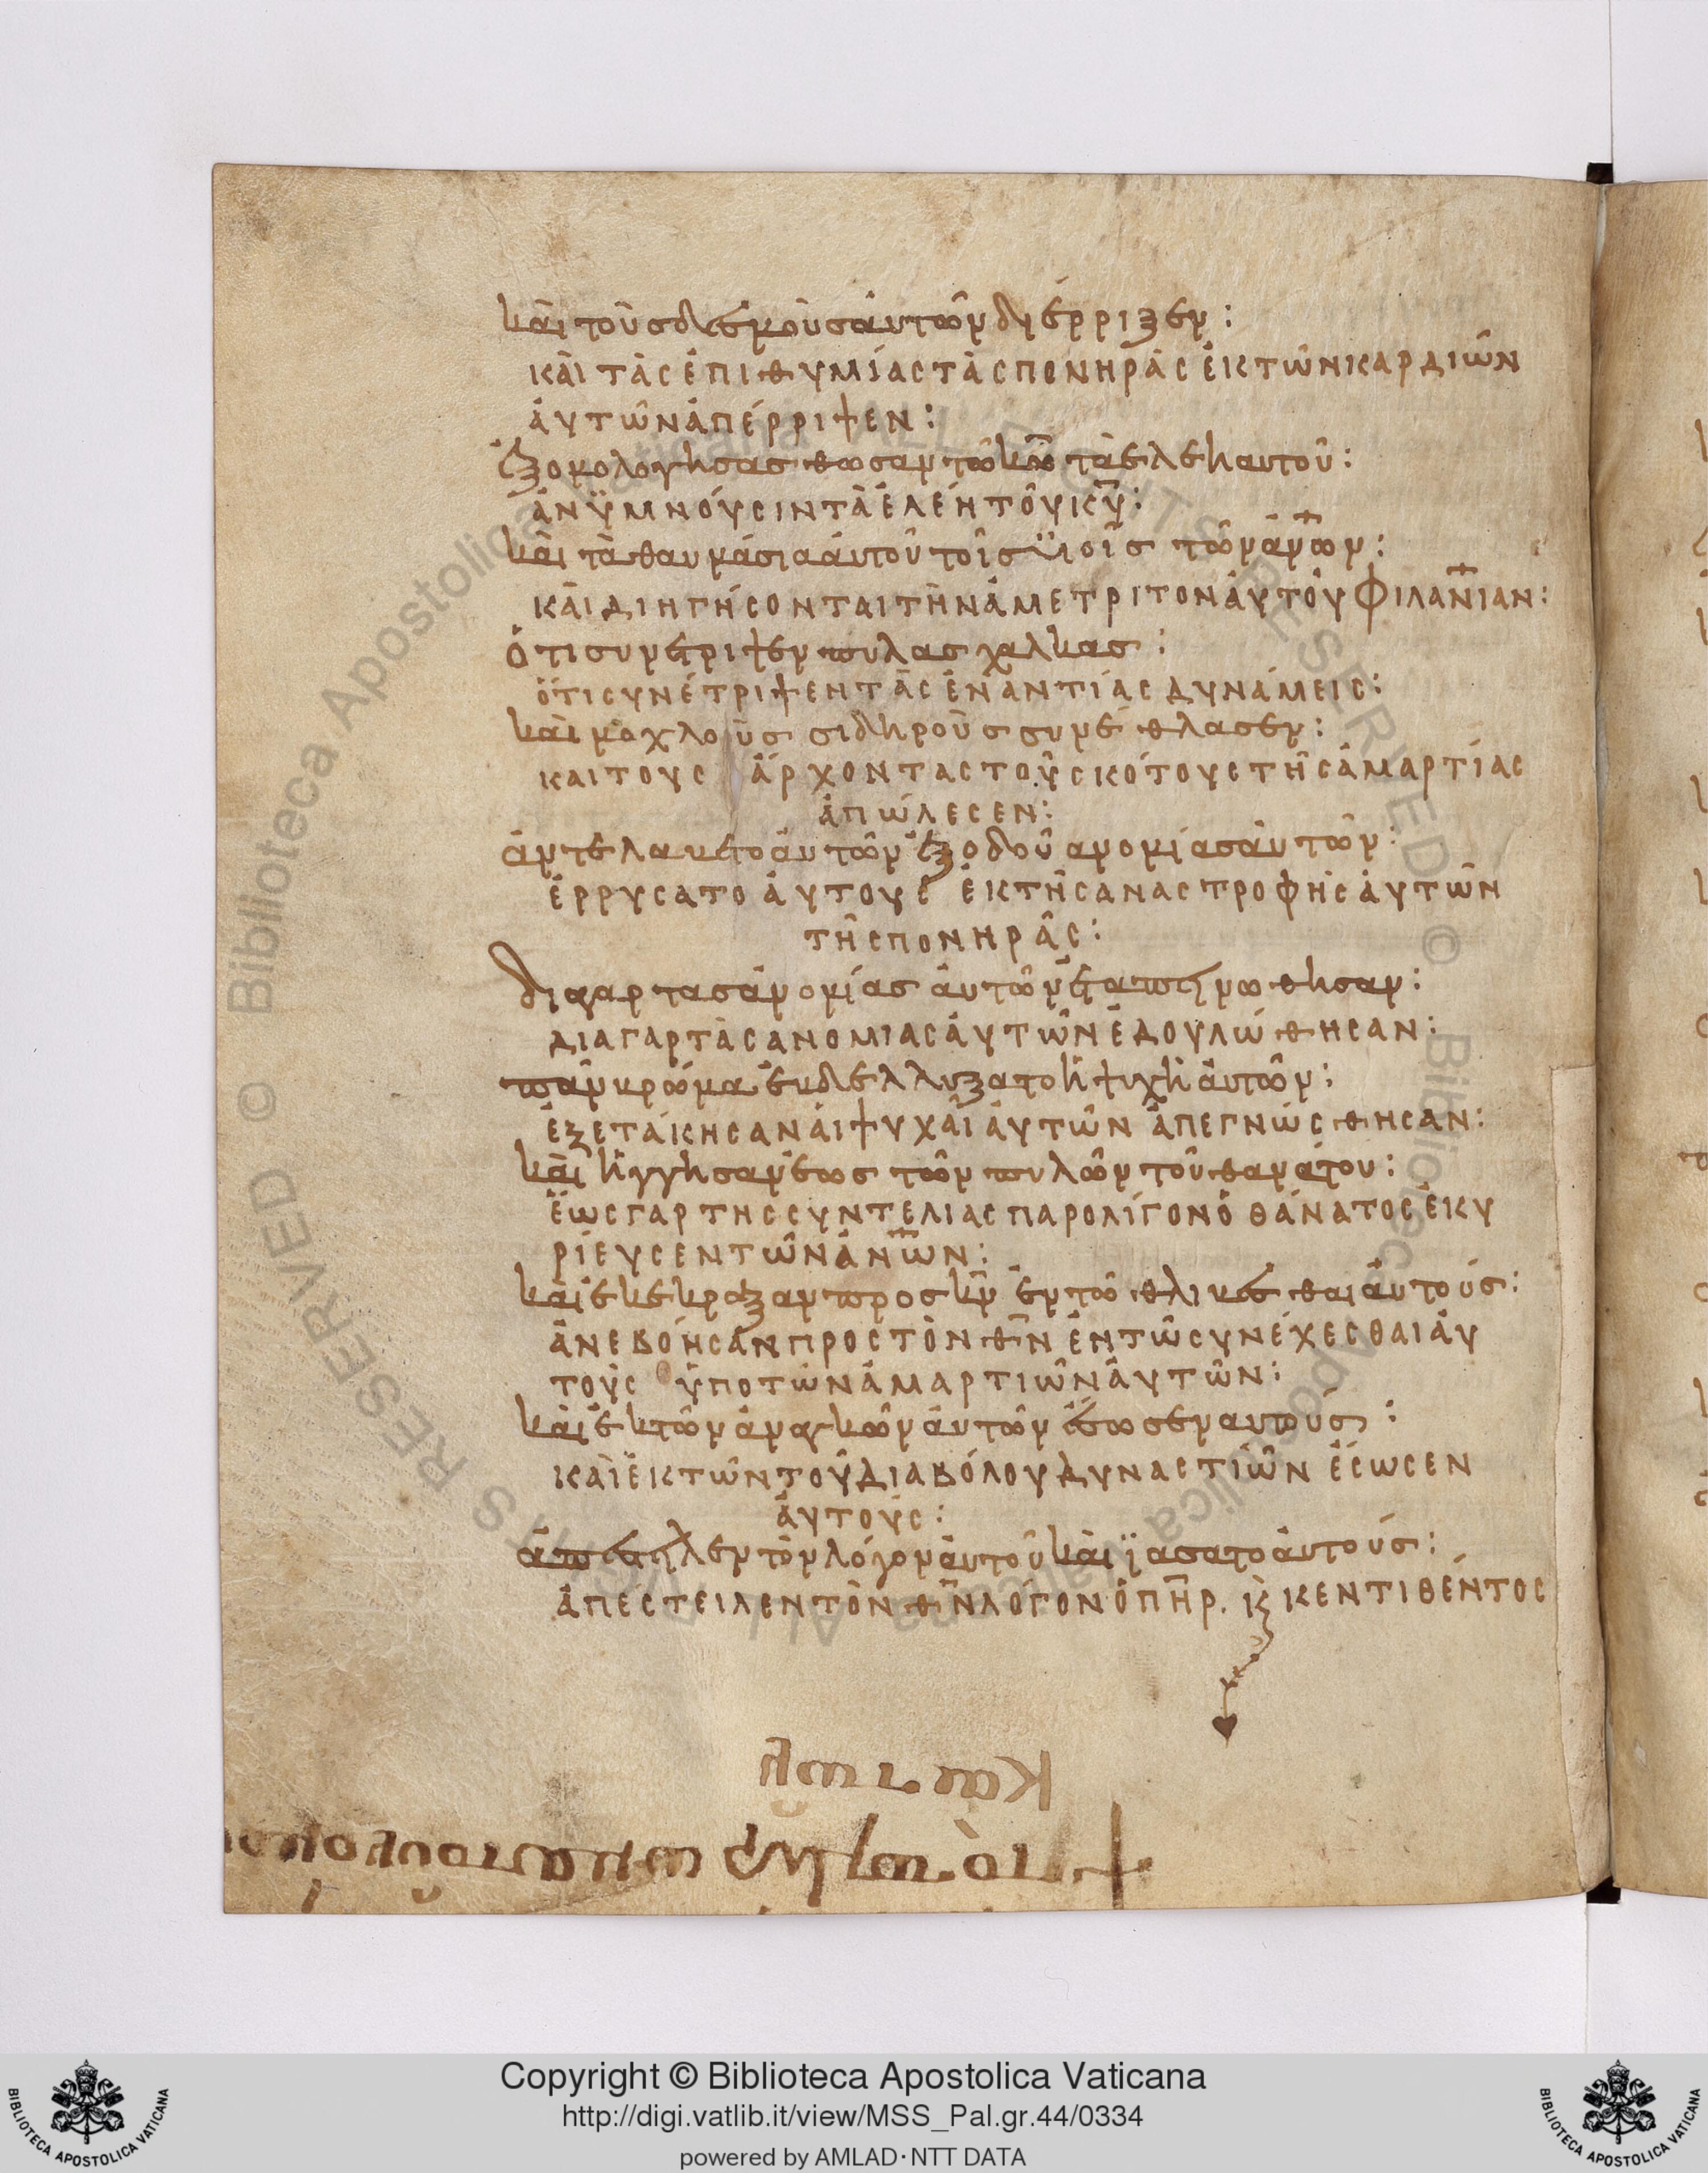 καὶ τοὺς δεσμοὺς ἀυτῶν διέρρηξεν :
ΚΑῚ ΤᾺС ἘΠΙΘΥΜΊΑС ΤᾺС ΠΟΝΗΡᾺС ἘΚ ΤΩ͂Ν ΚΑΡΔΙΩ͂Ν
ἈΥΤΩ͂Ν ἈΠΈΡΡΙΨΕΝ :
ἐξομολογησασθωσαν τῶ κ̅ω̅ τὰ ἐλεη αυτοῦ :
ἈΝΫΜΝΌΥСΙΝ ΤᾺ ἘΛΈΗ ΤΟΥ͂ Κ̅Υ̅ :
καὶ τὰ θαυμάσια ἀυτοῦ τοῖς ϋἱοῖς τῶν ἀν̅ων :
ΚΑῚ ΔΙΗΓΉСΟΝΤΑΙ ΤῊΝ ἈΜΕΤΡΙΤΟΝ ἈΥΤΟΥ͂ ΦΙΛΑΝ̅ΙΑΝ :
ὅτι συνετριψεν πυλας χαλκας :
ὍΤΙ СΥΝΈΤΡΙΨΕΝ ΤᾺС ἘΝΑΝΤΊΑС ΔΥΝΆΜΕΙС :
καὶ μοχλοὺς σιδηροὺς συνέθλασεν :
ΚΑΙ ΤΟΥС ἌΡΧΟΝΤΑС ΤΟΥ͂ СΚΌΤΟΥС ΤΗ͂С ἉΜΑΡΤΊΑС
ἈΠΏΛΕСΕΝ :
ἀντελαβετο ἀυτῶν ἐξ οδοῦ ανομίας ἀυτῶν :
ἘΡΡΥСΑΤΟ ἈΥΤΟΥС ἘΚ ΤΗ͂С ΑΝΑСΤΡΟΦΗ͂С ἈΥΤΩ͂Ν
ΤΗ͂С ΠΟΝΗΡΑ͂С :
δια γαρ τας ἀνομίας ἀυτῶν ἐταπεινωθησαν :
ΔΙΑ ΓΑΡ ΤᾺС ΑΝΟΜΙΑС ἈΥΤΩ͂Ν ἘΔΟΥΛΏΘΗСΑΝ :
πᾶν βρῶμα ἐβδελλυξατο ἡ ψυχὴ ἀυτῶν :
ἘΞΕΤΆΚΗСΑΝ ἉΙ ΨΥΧΑῚ ἈΥΤΩ͂Ν ἈΠΕΓΝΏСΘΗСΑΝ :
καὶ ἤγγησαν ἕως τῶν πυλῶν τοῦ θανάτου :
ἝΩС ΓΑΡ ΤΗС СΥΝΤΕΛΙΑС ΠΑΡΟΛΊΓΟΝ Ὁ ΘΆΝΑΤΟС ἘΚΥ
ΡΊΕΥСΕΝ ΤΩ͂Ν ἈΝ̅Ω̅Ν :
καὶ ἐκεκραξαν προς κ̅ν̅ ἐν τῶ θλιβεσθαι ἀυτούς :
ἈΝΕΒΌΗСΑΝ ΠΡΟС ΤῸΝ Θ̅Ν̅ ἘΝ ΤΩ͂ СΥΝΈΧΕСΘΑΙ ἈΥ
ΤΟῪС ὙΠΟ ΤΩ͂Ν ἉΜΑΡΤΙΩ͂Ν ἈΥΤΩ͂Ν :
καὶ ἐκ τῶν ἀναγκῶν ἀυτῶν ἔσωσεν αυτούς :
ΚΑῚ ἘΚ ΤΩ͂Ν ΤΟΥ͂ ΔΙΑΒΌΛΟΥ ΔΥΝΑСΤΙΩ͂Ν ἜСΩСΕΝ
ἈΥΤΟΎС :
ἀπέστειλεν τὸν λόγον ἀυτοῦ καὶ ϊασατο ἀυτούς :
ἈΠΈСΤΕΙΛΕΝ ΤῸΝ Θ̅Ν̅ ΛΌΓΟΝ Ὁ Π̅Η̅Ρ. Κ̀ ΚΕΝΤΙΘΈΝΤΟС
Copyright © Biblioteca Apostolica Vaticana
http://digi.vatlib.it/view/MSS_Pal.gr.44/0334
powered by AMLAD·NTT DATA
BIBLIOTECA APOSTOLICA VATICANA
BIBLIOTECA APOSTOLICA VATICANA